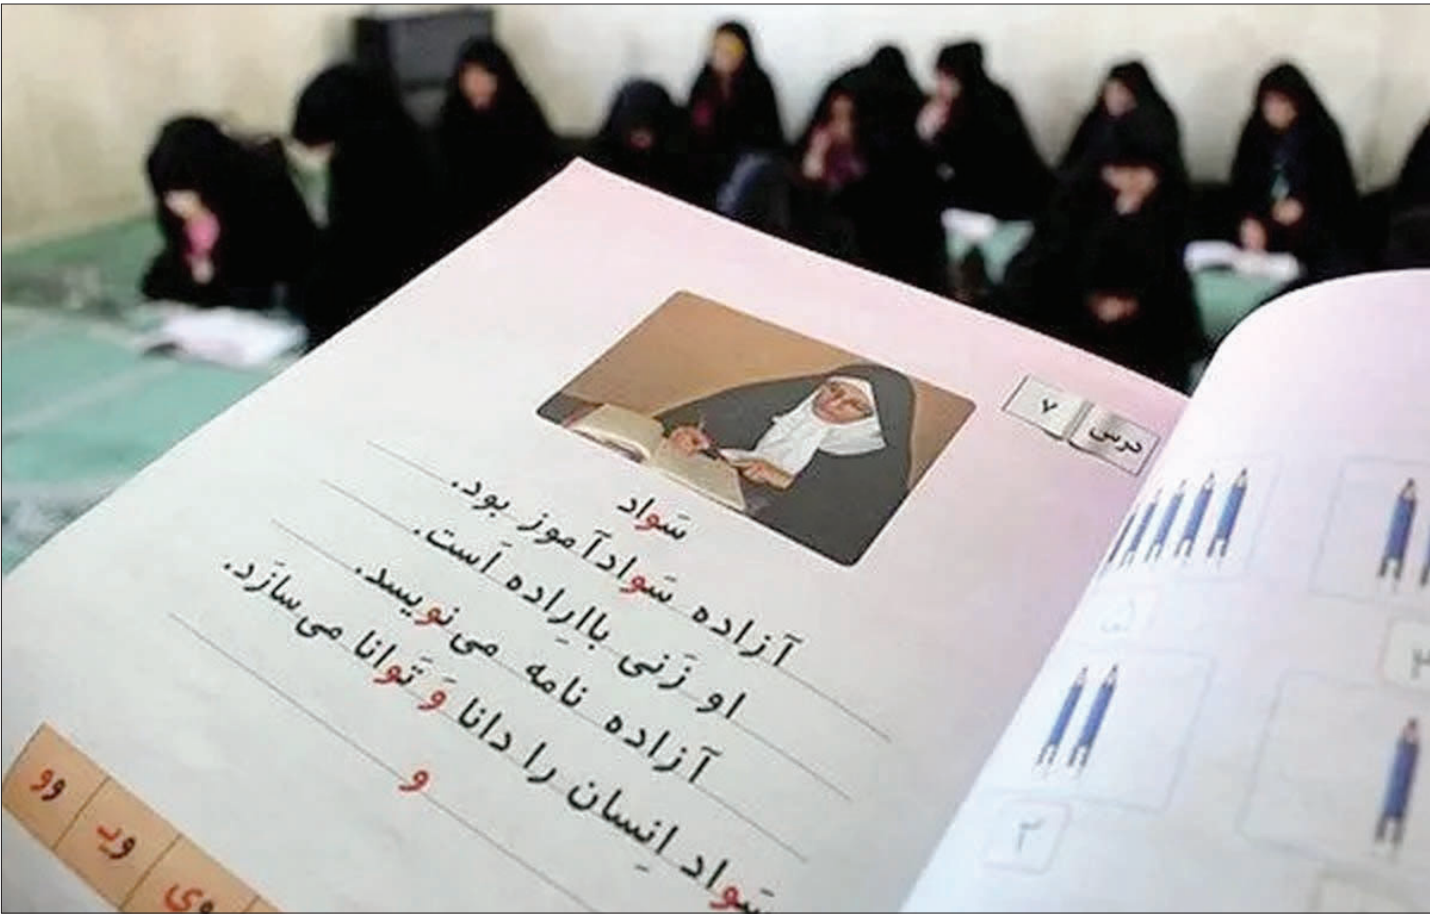 درس ۷
سَواد
آزاده سَوادآموز بود.
او زَنی بااِراده اَست.
آزاده نامه می‌نویسد.
سَواد اِنسان را دانا وَ تَوانا می‌سازَد.
و
وی ویـ وو
۵
۲